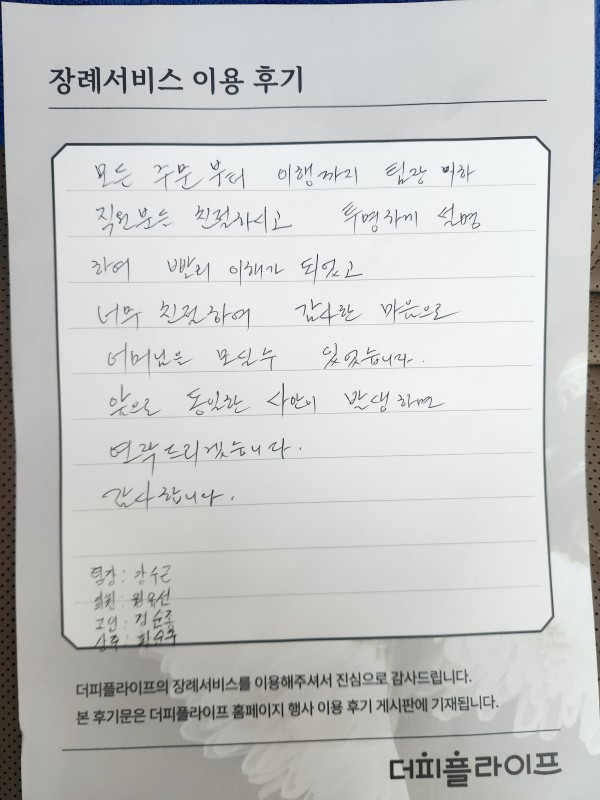 장례서비스 이용 후기
모든 주문부터 이행까지 팀장 이하
직원분들 친절하시고 투명하게 설명
하여 빨리 이해가 되었고
너무 친절하여 감사한 마음으로
어머님을 모실수 있었습니다.
앞으로 동일한 사안이 발생하면
연락드리겠습니다.
감사합니다.
팀장: 강수근
고인: 김순종
상주:
더피플라이프의 장례서비스를 이용해주셔서 진심으로 감사드립니다.
본 후기문은 더피플라이프 홈페이지 행사 이용 후기 게시판에 기재됩니다.
더피플라이프